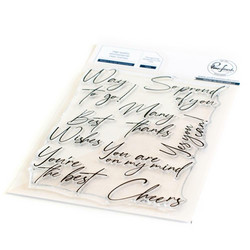 Way
to go!
So proud
of you
Many
thanks
Yes you
can!
Best
Wishes
You are
on my mind
You're
the best
Cheers